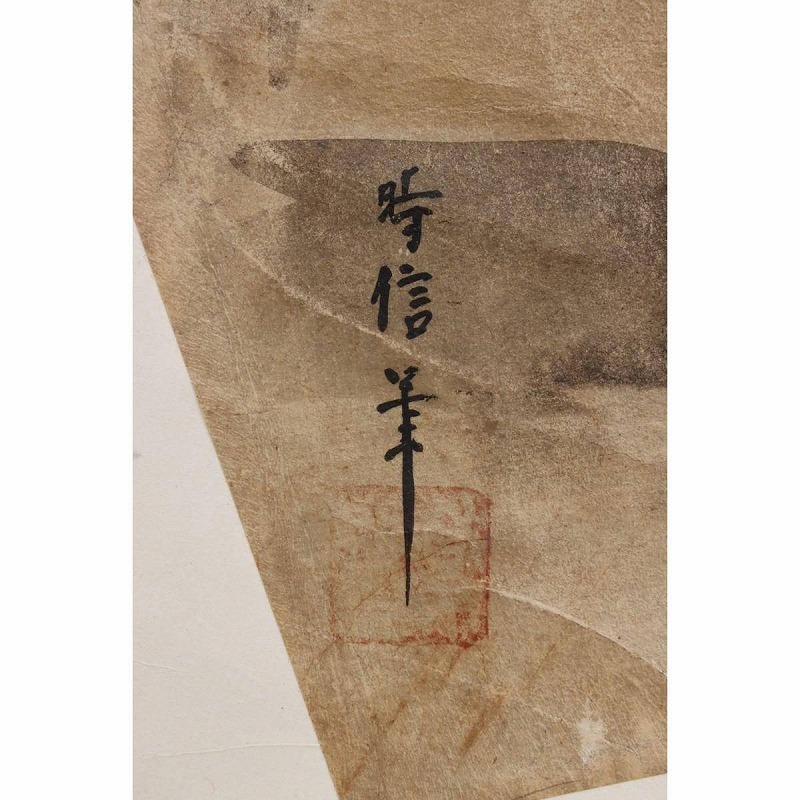 時信筆